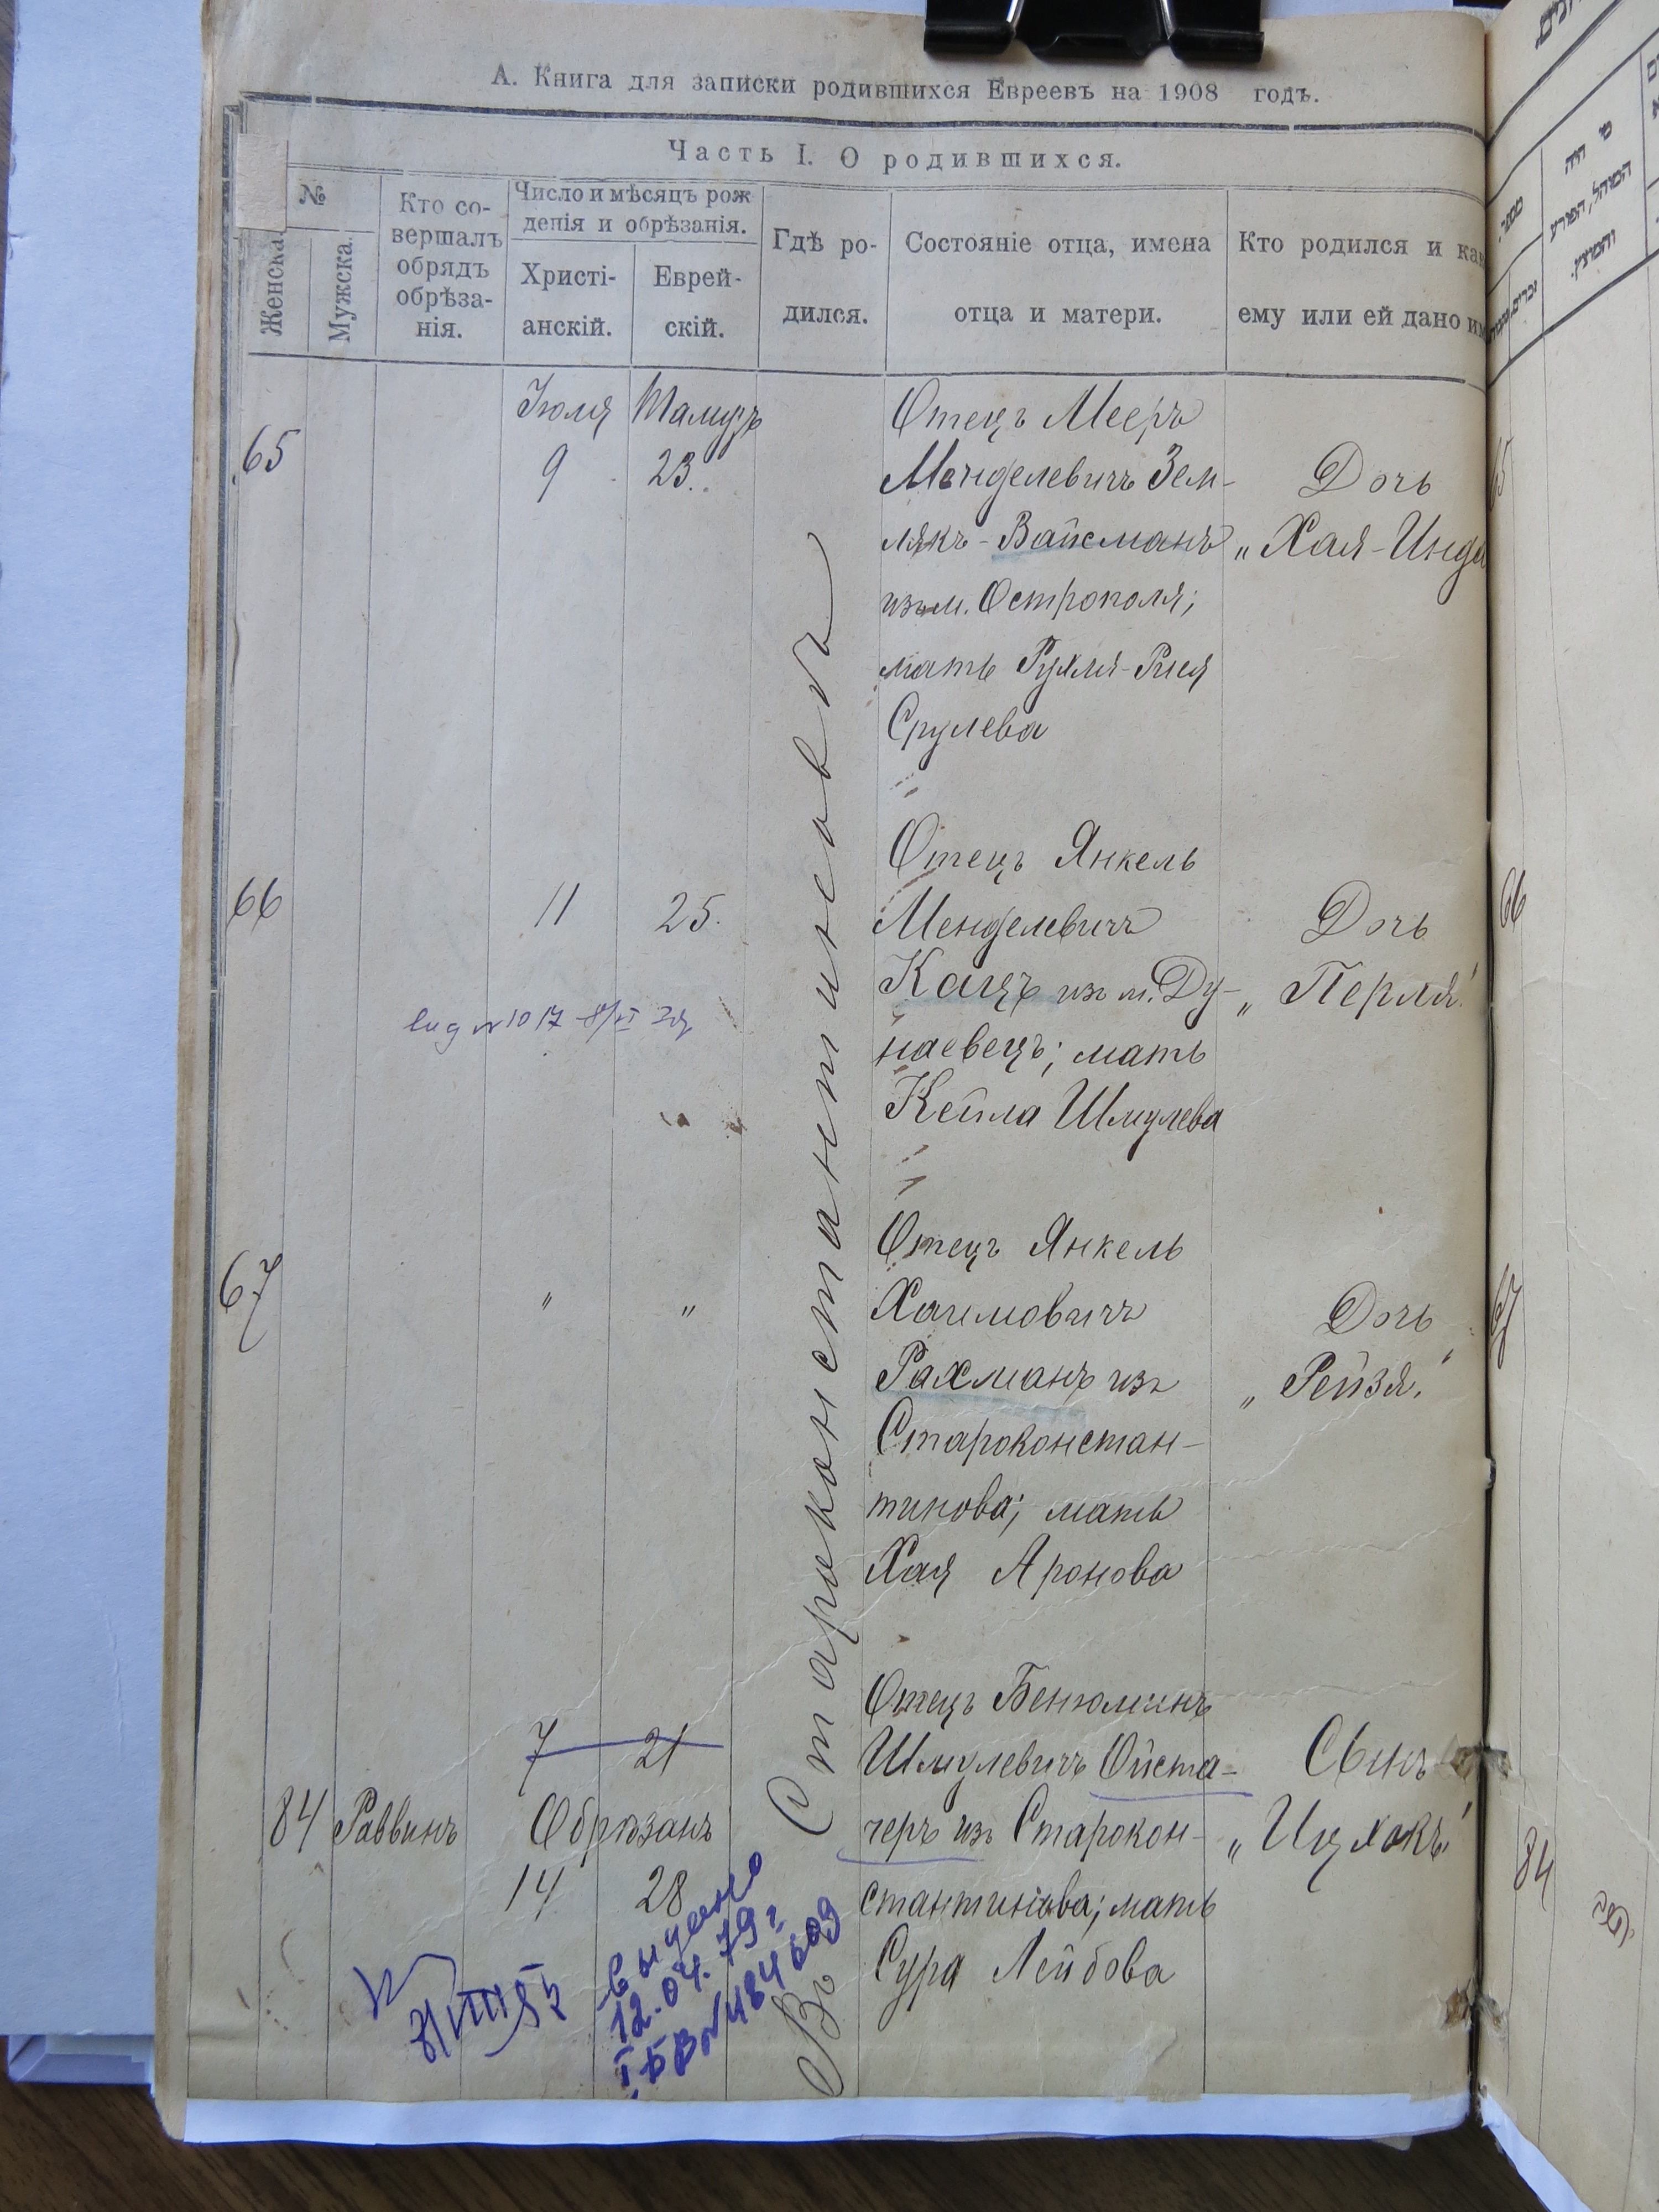 А. Книга для записки родившихся Евреевъ на 1908 годъ.
Часть I. О родившихся.
№
Женска.
Мужска.
Кто со-
вершалъ
обрядъ
обрѣза-
нія.
Число и мѣсяцъ рож
денія и обрѣзанія.
Христі-
анскій.
Еврей-
скій.
Гдѣ ро-
дился.
Состояніе отца, имена
отца и матери.
Кто родился и как
ему или ей дано им
Въ Староконстантиновѣ
65
Іюля
9
Тамузъ
23.
Отецъ Мееръ
Менделевичъ Зем-
лякъ-Вайсманъ
изъ м. Острополя;
мать Рухля-Рися
Срулева
Дочь
„Хая-Инда
66
11
25.
Отецъ Янкель
Менделевичъ
Кацъ изъ м. Ду-
наевецъ; мать
Кейла Шмулева
Дочь
„Перля“
67
"
"
Отецъ Янкель
Хаимовичъ
Рахманъ изъ
Староконстан-
тинова; мать
Хая Аронова
Дочь
„Рейзя“
84
Раввинъ
7
21
Обрѣзанъ
14
28
Отецъ Бенюминъ
Шмулевичъ Ойста-
черъ изъ Старокон-
стантинова; мать
Сура Лейбова
Сынъ
„Ицхокъ“
выдано
12.04.79г
65
66
67
84
מספר
המוהל, הפורע
והמוצץ.